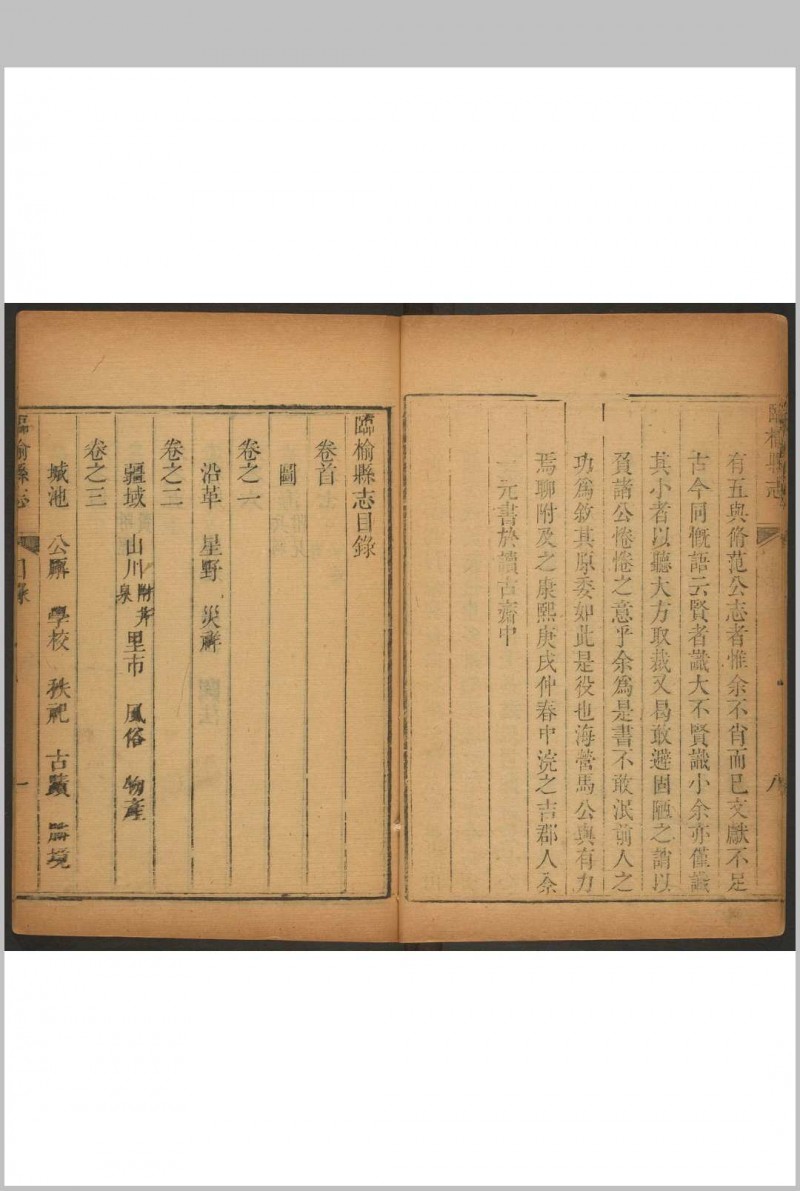 臨榆縣志
八
有五與脩范公志者惟余不肖而已文獻不足
古今同慨語云賢者識大不賢識小余亦僅識
其小者以聽大方取裁又曷敢避固陋之誚以
負諸公惓惓之意乎余為是書不敢泯前人之
功為敘其原委如此是役也海營馬公與有力
焉聊附及之康熙庚戌仲春中浣之吉郡人佘
一元書於讀古齋中
臨榆縣志目錄
卷首
圖
卷之一
沿革 星野 災祥
卷之二
疆域 山川附井泉 里市 風俗 物產
卷之三
城池 公廨 學校 秩祀 古蹟 勝境
臨榆縣志 目錄 一